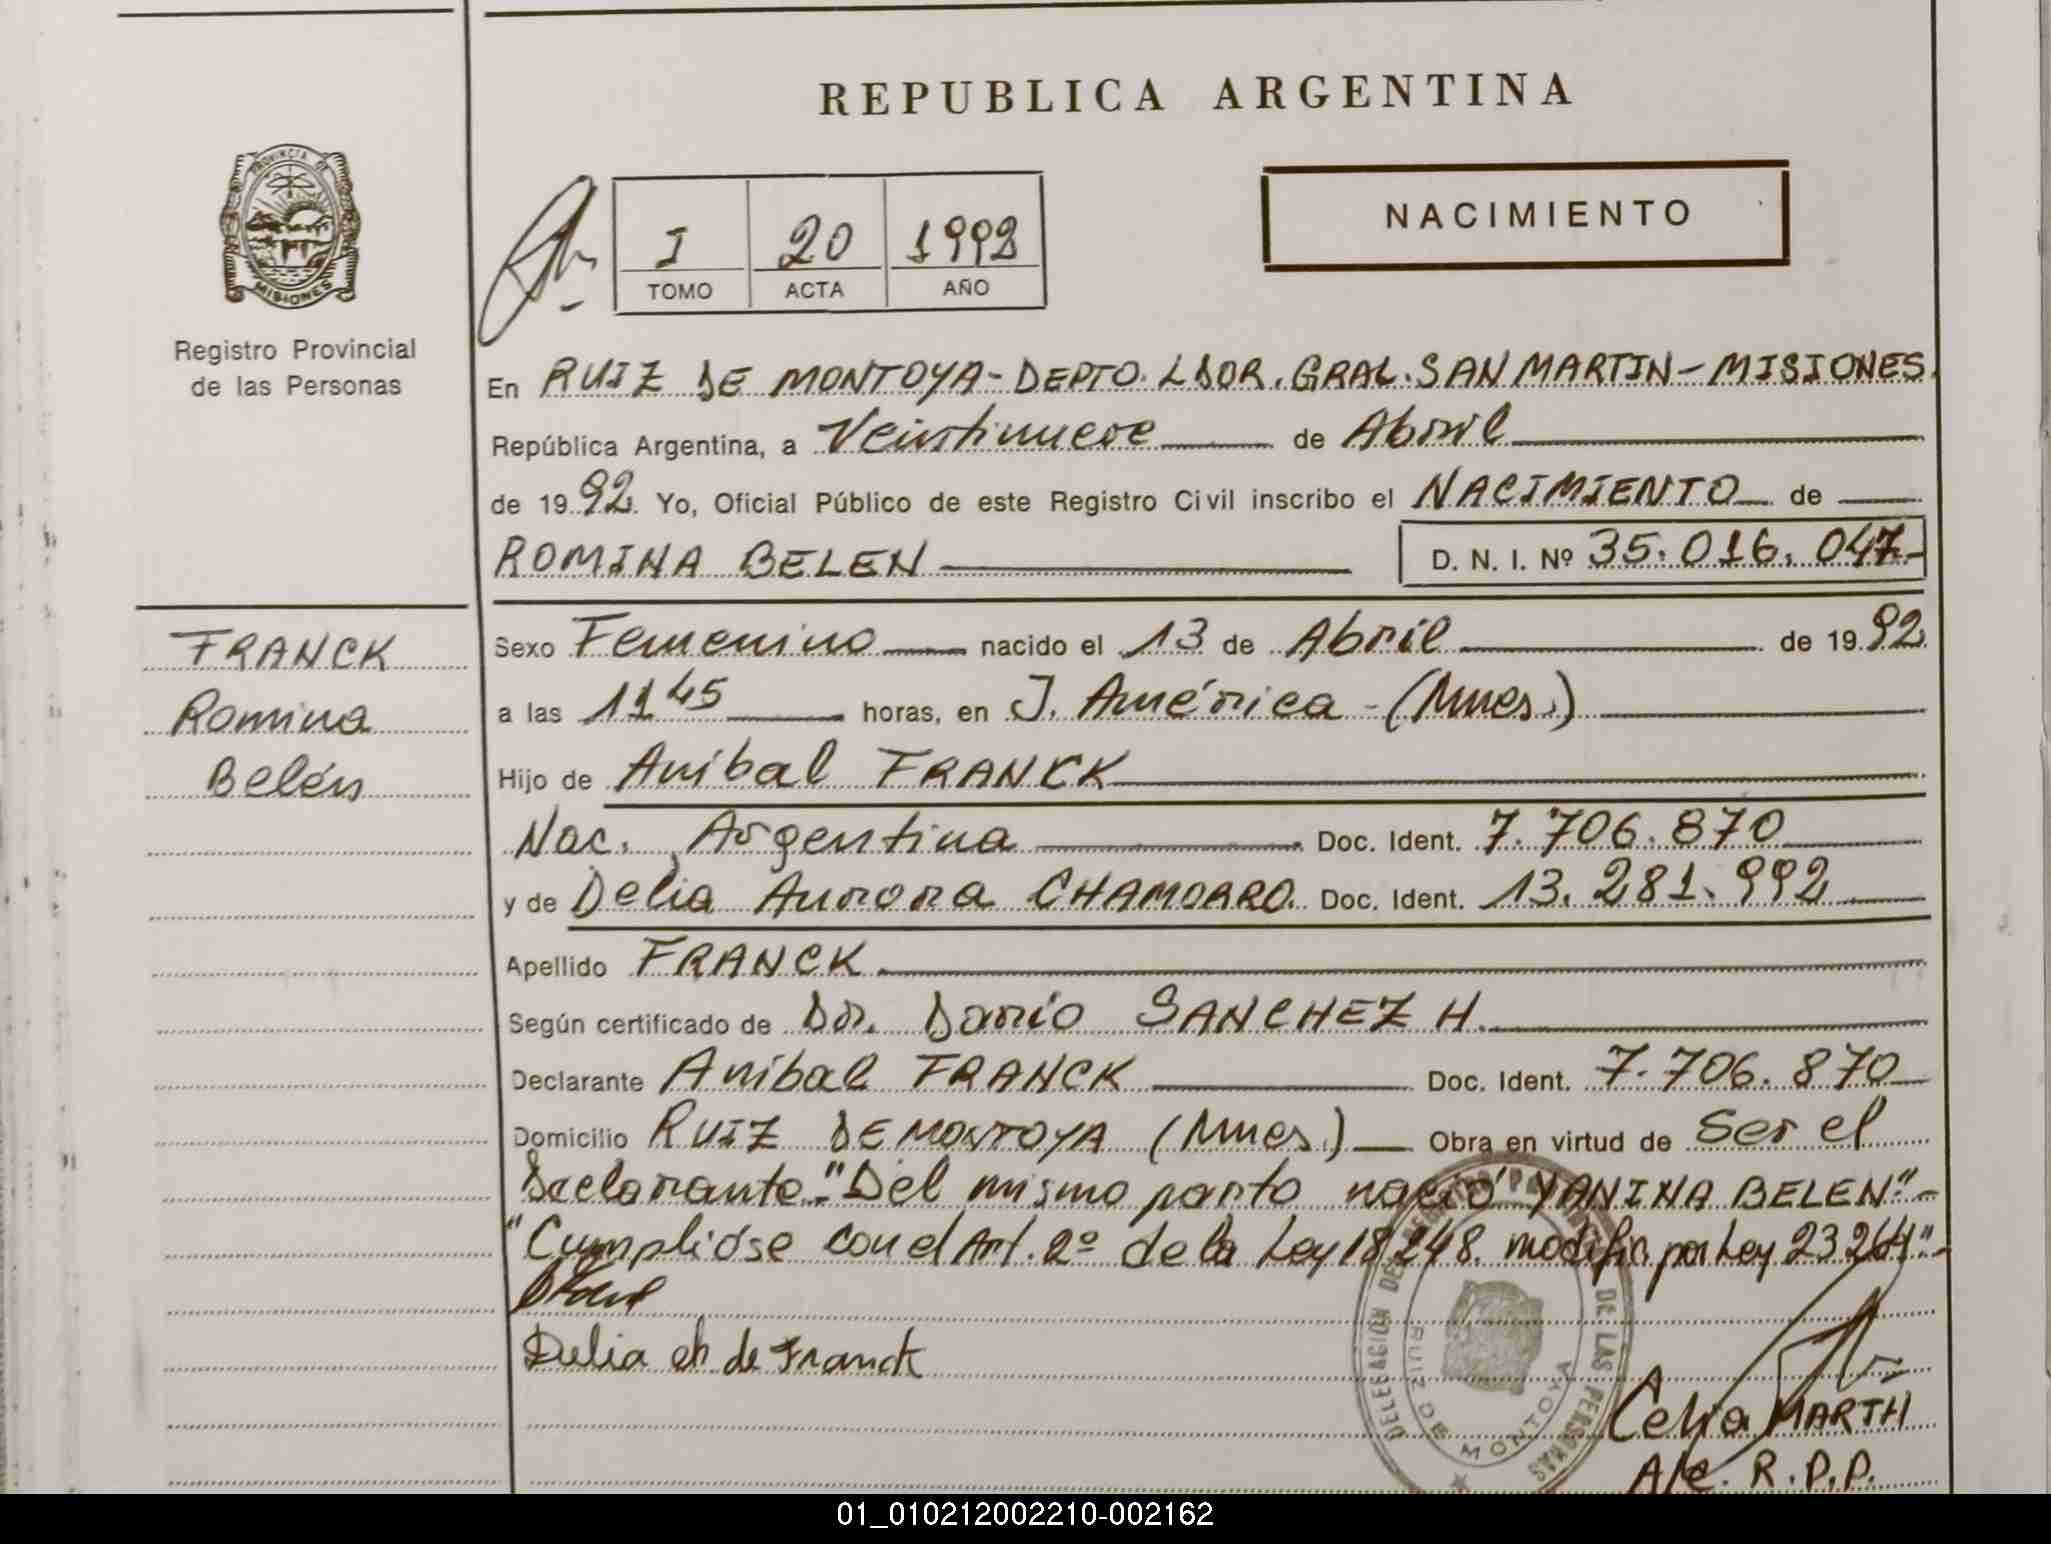 REPUBLICA ARGENTINA
PROVINCIA DE
MISIONES
Registro Provincial
de las Personas
I 20 1992
TOMO ACTA AÑO
NACIMIENTO
En RUIZ DE MONTOYA - DEPTO. LDOR. GRAL. SAN MARTIN - MISIONES.
República Argentina, a Veintinueve de Abril
de 1992. Yo, Oficial Público de este Registro Civil inscribo el NACIMIENTO de
ROMINA BELEN D. N. I. Nº 35.016.047-
FRANCK
Romina
Belén
Sexo Femenino nacido el 13 de Abril de 1992
a las 11 45 horas, en J. América - (Mnes.)
Hijo de Aníbal FRANCK
Nac. Argentina Doc. Ident. 7.706.870
y de Delia Aurora CHAMORRO. Doc. Ident. 13.281.992
Apellido FRANCK
Según certificado de Dr. Darío SANCHEZ H.
Declarante Aníbal FRANCK Doc. Ident. 7.706.870
Domicilio RUIZ DE MONTOYA (Mnes.) Obra en virtud de Ser el
Declarante. "Del mismo parto nació YANINA BELEN".-
"Cumplióse con el Art. 2º de la Ley 18.248. modific. por Ley 23.264".-
Delia ch de Franck
DELEGACION DEL REGISTRO DE LAS PERSONAS
RUIZ DE MONTOYA
Celia MARTH
A/c. R.P.P.
01_010212002210-002162